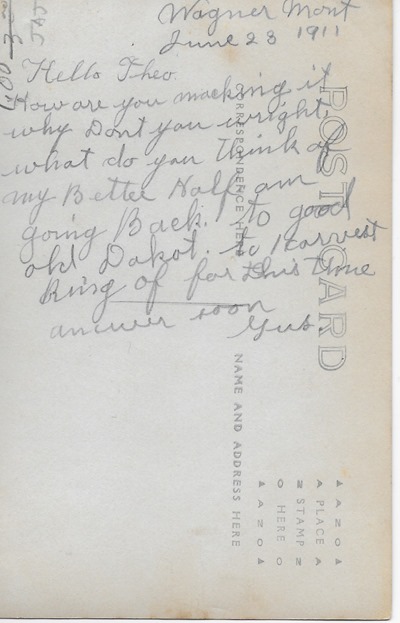 Wagner Mont
June 23 1911
Hello Theo.
How are you macking it
why Dont you wright
what do you think of
my Better Half am
going Back. to good
old Dakot. to Harvest
Ring of for this time
answer soon
Gus.
POST CARD
CORRESPONDENCE HERE
NAME AND ADDRESS HERE
AZO
PLACE
STAMP
HERE
AZO